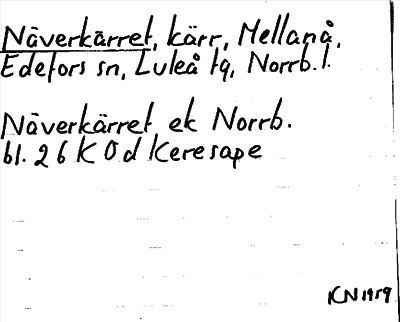 Näverkärret, kärr, Mellanå,
Edefors sn, Luleå tg, Norrb.l.
Näverkärret ek Norrb.
bl. 26 K 0 d Keresape
KN 1959